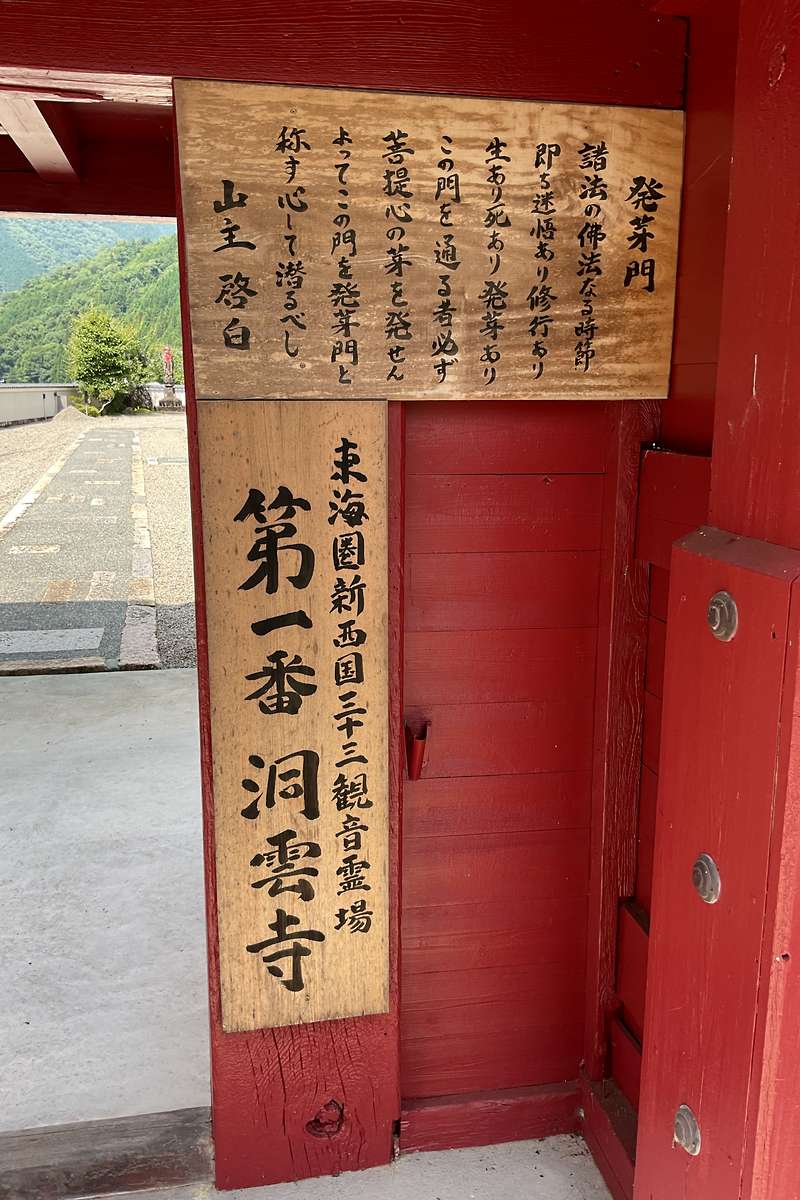 発芽門
諸法の佛法なる時節
即ち迷悟あり修行あり
生あり死あり発芽あり
この門を通る者必ず
菩提心の芽を発せん
よってこの門を発芽門と
称す心して潜るべし。
山主 啓白
東海圏新西国三十三観音霊場
第一番 洞雲寺